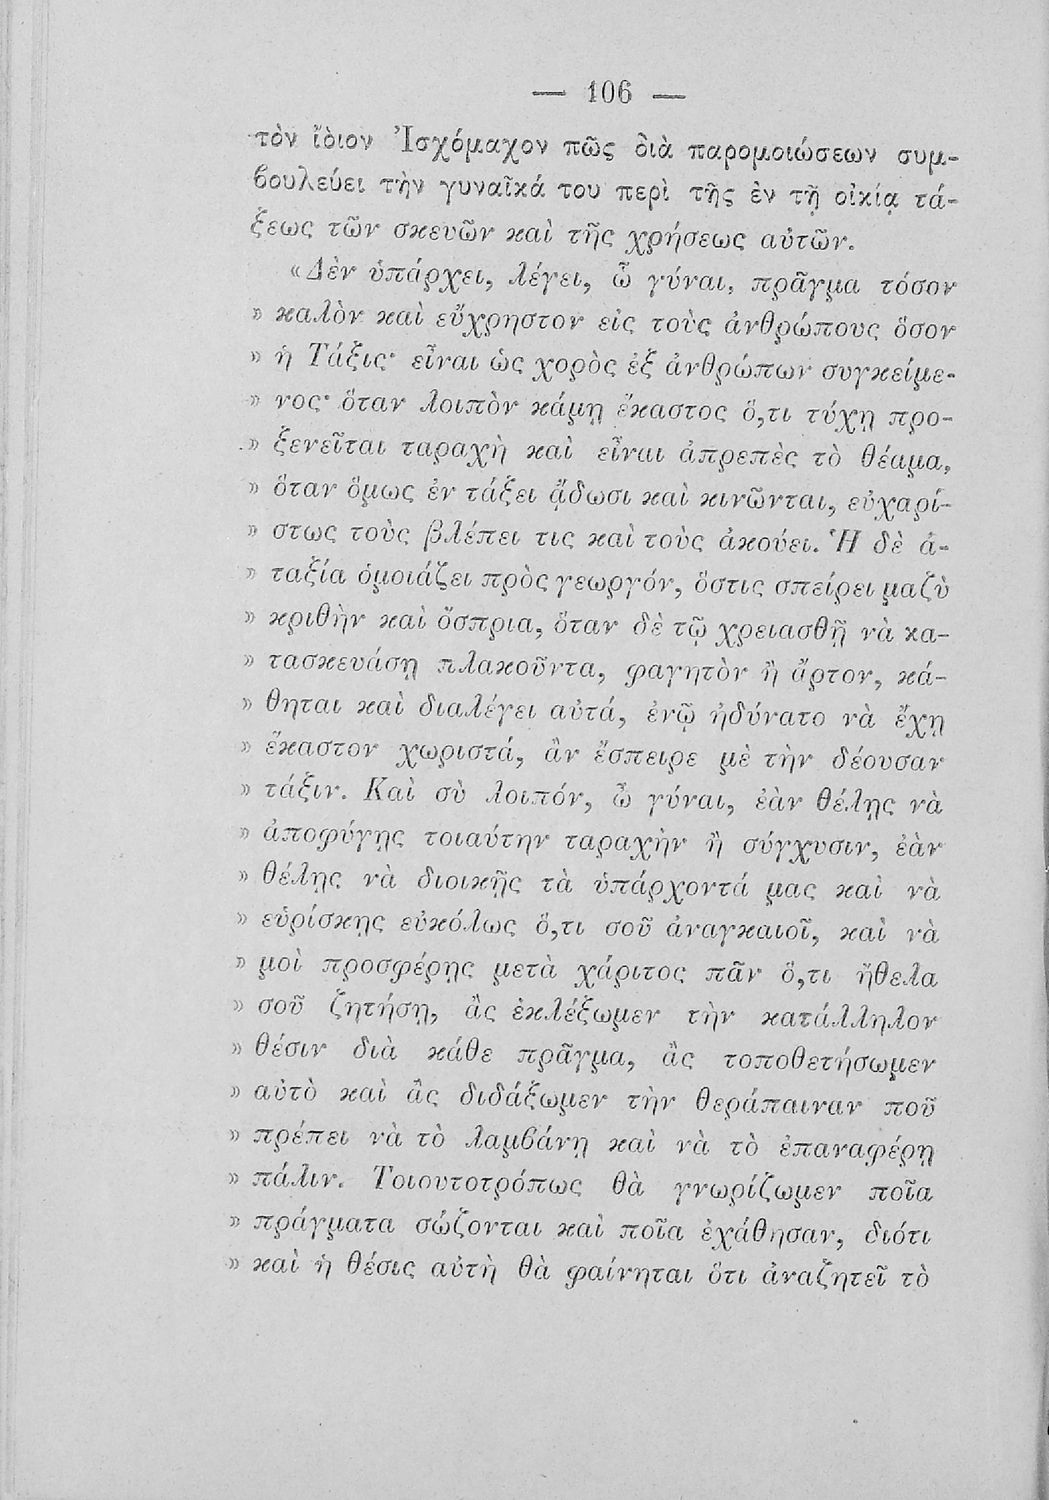 — 106 —
τὸν ἴδιον Ἰσχόμαχον πῶς διὰ παρομοιώσεων συμ-
βουλεύει τὴν γυναῖκά του περὶ τῆς ἐν τῇ οἰκίᾳ τά-
ξεως τῶν σκευῶν καὶ τῆς χρήσεως αὐτῶν.
«Δὲν ὑπάρχει, λέγει, ὦ γύναι, πρᾶγμα τόσον
» καλὸν καὶ εὔχρηστον εἰς τοὺς ἀνθρώπους ὅσον
» ἡ Τάξις· εἶναι ὡς χορὸς ἐξ ἀνθρώπων συγκείμε-
» νος· ὅταν λοιπὸν κάμῃ ἕκαστος ὅ,τι τύχῃ προ-
» ξενεῖται ταραχὴ καὶ εἶναι ἀπρεπὲς τὸ θέαμα,
» ὅταν ὅμως ἐν τάξει ᾄδωσι καὶ κινῶνται, εὐχαρί-
» στως τοὺς βλέπει τις καὶ τοὺς ἀκούει. Ἡ δὲ ἀ-
» ταξία ὁμοιάζει πρὸς γεωργόν, ὅστις σπείρει μαζὺ
» κριθὴν καὶ ὄσπρια, ὅταν δὲ τῷ χρειασθῇ νὰ κα-
» τασκευάσῃ πλακοῦντα, φαγητὸν ἢ ἄρτον, κά-
» θηται καὶ διαλέγει αὐτά, ἐνῷ ἠδύνατο νὰ ἔχῃ
» ἕκαστον χωριστά, ἂν ἔσπειρε μὲ τὴν δέουσαν
» τάξιν. Καὶ σὺ λοιπόν, ὦ γύναι, ἐὰν θέλῃς νὰ
» ἀποφύγῃς τοιαύτην ταραχὴν ἢ σύγχυσιν, ἐὰν
» θέλῃς νὰ διοικῇς τὰ ὑπάρχοντά μας καὶ νὰ
» εὑρίσκῃς εὐκόλως ὅ,τι σοῦ ἀναγκαιοῖ, καὶ νὰ
» μοὶ προσφέρῃς μετὰ χάριτος πᾶν ὅ,τι ἤθελα
» σοῦ ζητήσῃ, ἂς ἐκλέξωμεν τὴν κατάλληλον
» θέσιν διὰ κάθε πρᾶγμα, ἂς τοποθετήσωμεν
» αὐτὸ καὶ ἂς διδάξωμεν τὴν θεράπαιναν ποῦ
» πρέπει νὰ τὸ λαμβάνῃ καὶ νὰ τὸ ἐπαναφέρῃ
» πάλιν. Τοιουτοτρόπως θὰ γνωρίζωμεν ποῖα
» πράγματα σώζονται καὶ ποῖα ἐχάθησαν, διότι
» καὶ ἡ θέσις αὐτὴ θὰ φαίνηται ὅτι ἀναζητεῖ τὸ